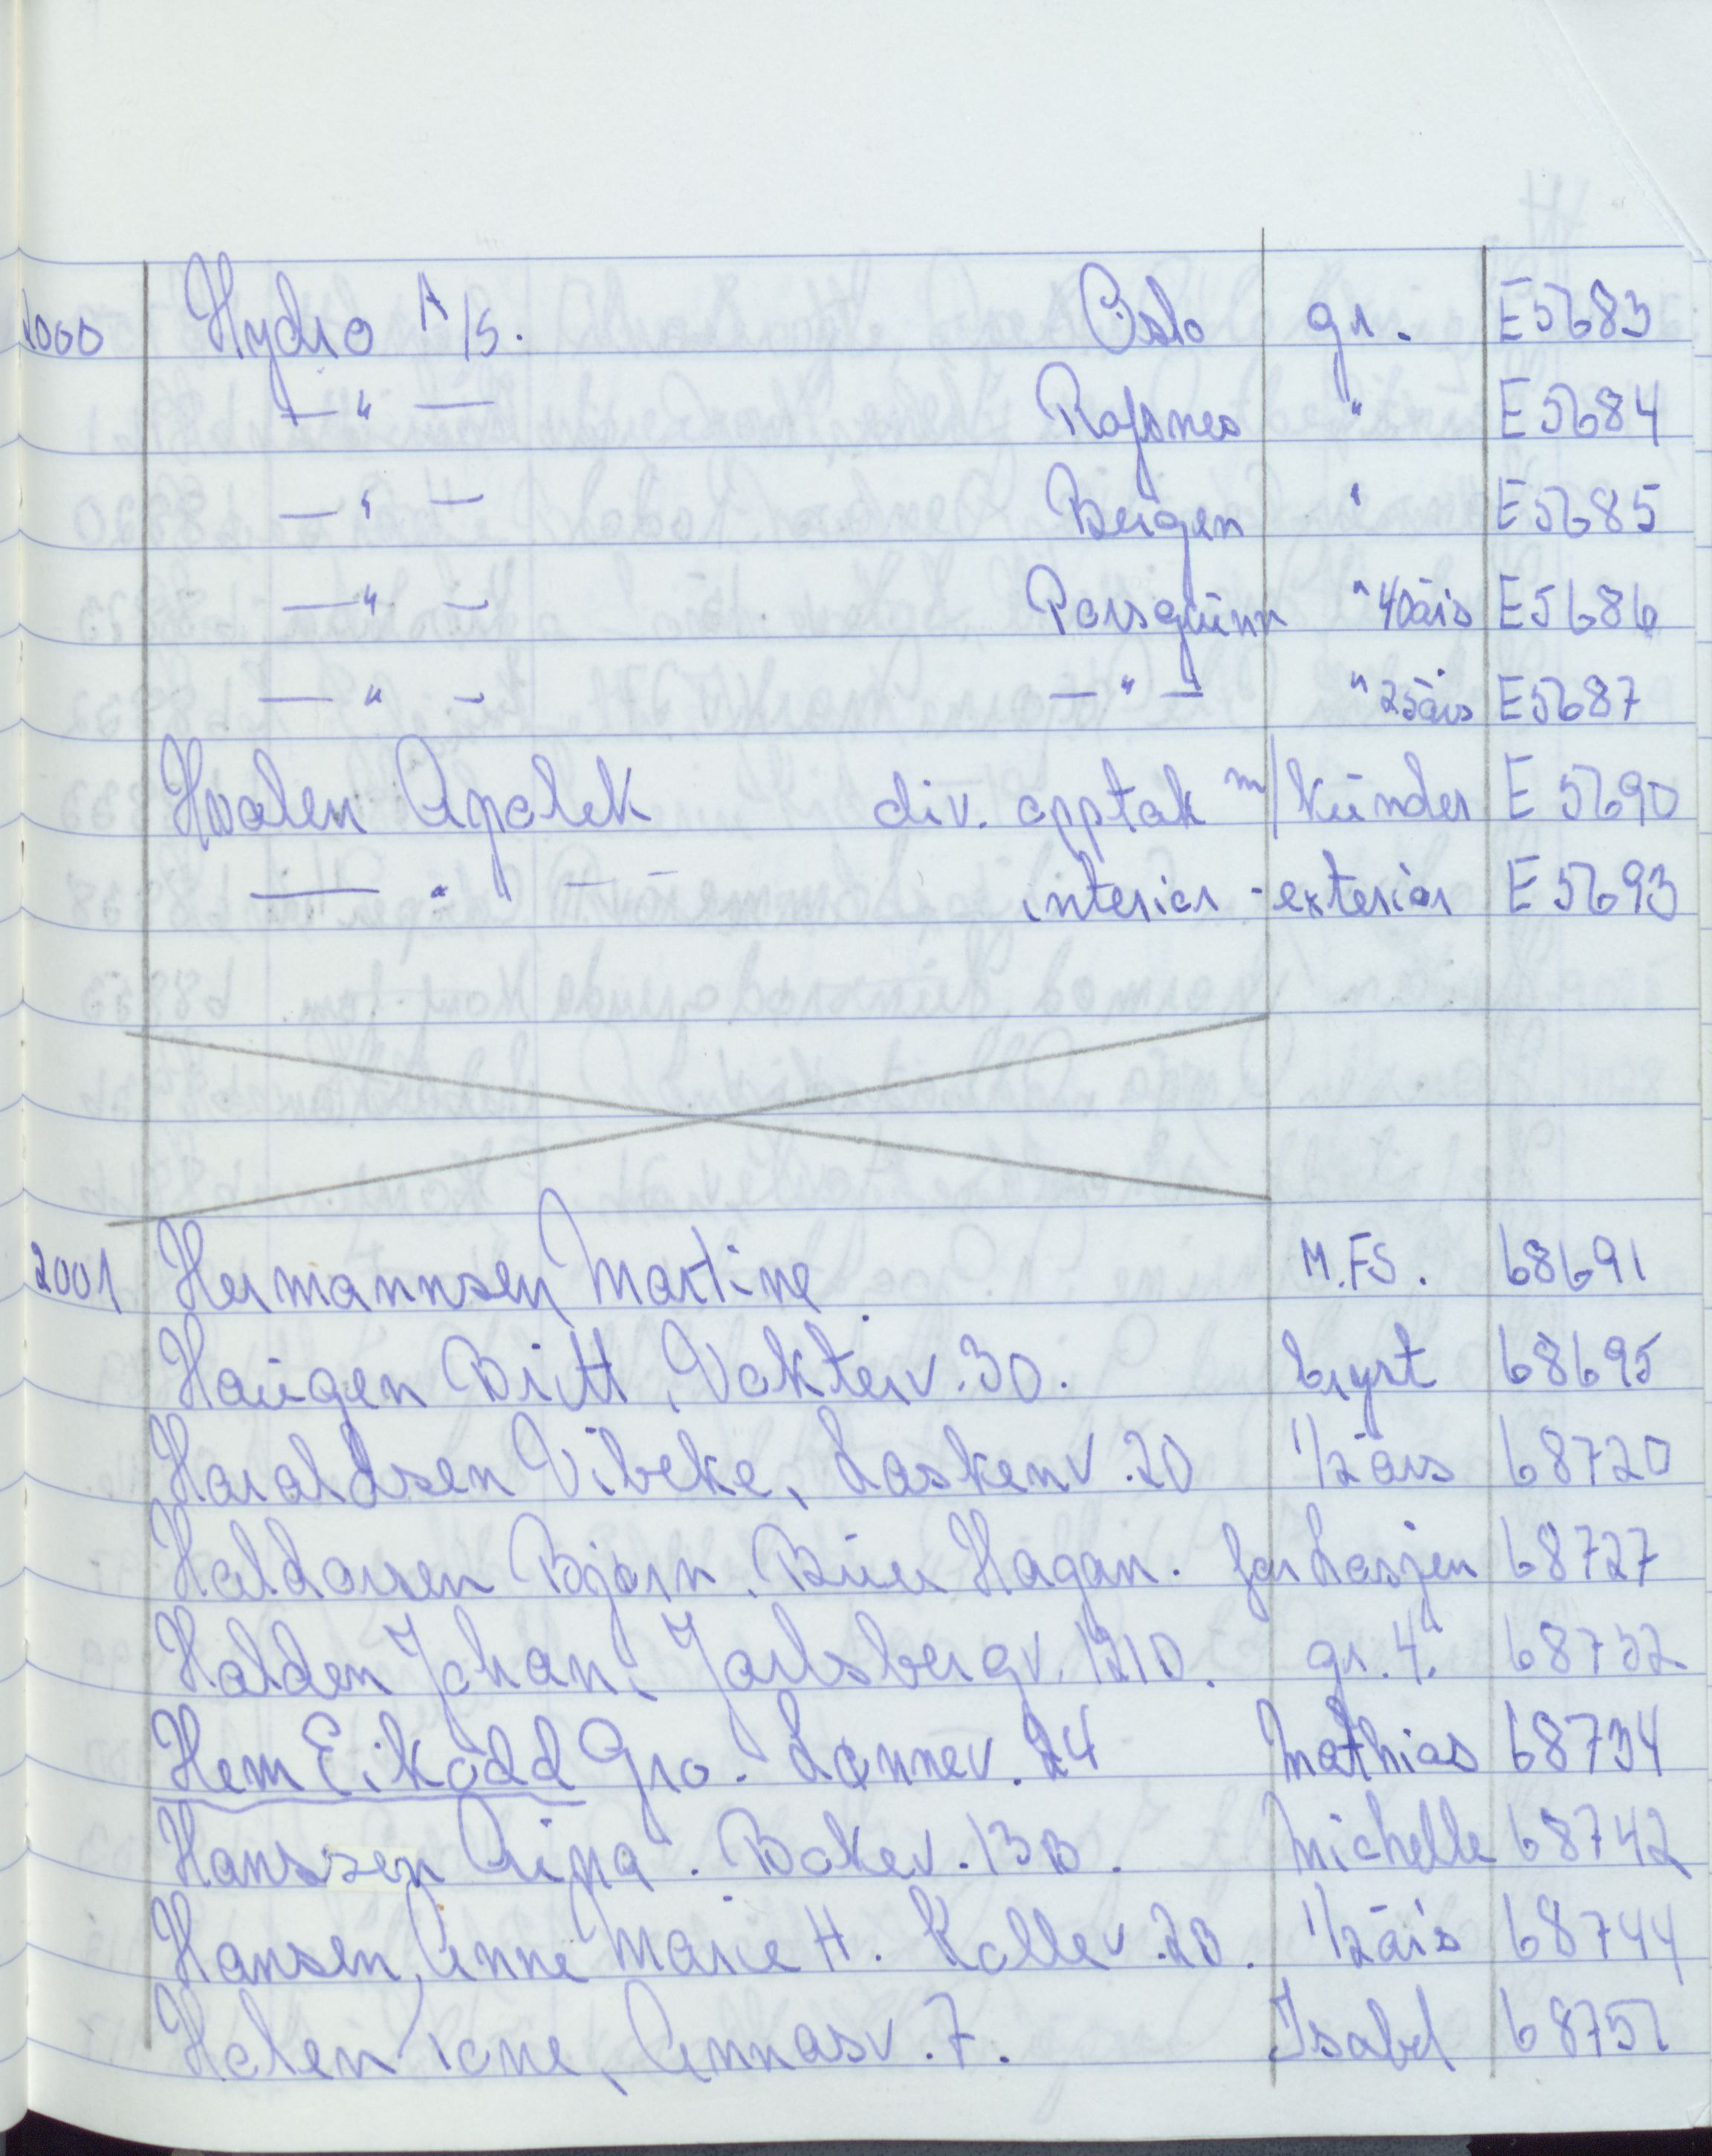 2000 Hydro A/S. Oslo gr. E5683
— " — Rafsnes " E5684
— " — Bergen " E5685
— " — Porsgrunn " 40års E5686
— " — — " — " 25års E5687
Hvalen Apotek div. opptak m/kunder E 5690
— " — interiør - exteriør E 5693
2001 Hermannsen Martine M.FS. 68691
Haugen Britt, Vakterv. 30. bryst 68695
Haraldsen Vibeke, Laskenv. 20 1/2 års 68720
Haldorsen Bjørn. Bur Hagan. 68727
Halden Johan, Jarlsbergv. 121D. gr. 4. 68732
Hem Eikødd Gro. Lønnev. 24 Mathias 68734
Hanssen Aina. Bokev. 13B. Michelle 68742
Hansen, Anne Marie H. Kollev. 2B. 1/2 års 68744
Holen Tone, Annasv. 7. Isabel 68751